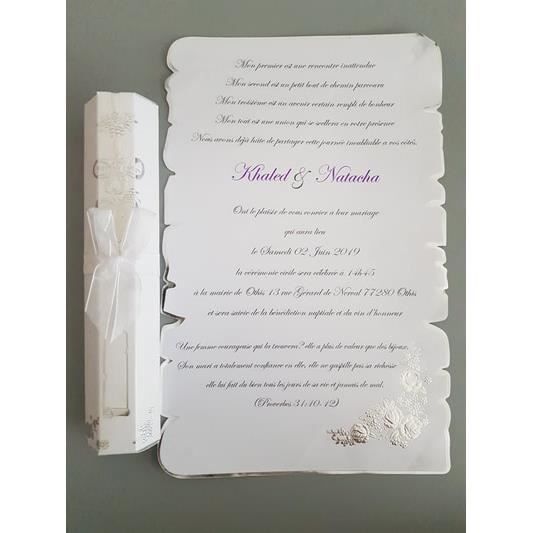 Mon premier est une rencontre inattendue
Mon second est un petit bout de chemin parcouru
Mon troisième est un avenir certain rempli de bonheur
Mon tout est une union qui se scellera en votre présence
Nous avons déjà hâte de partager cette journée inoubliable a vos côtés.
Khaled & Natacha
Ont le plaisir de vous convier a leur mariage
qui aura lieu
le Samedi 02 Juin 2019
la cérémonie civile sera célébrée à 14h45
à la mairie de Othis 13 rue Gérard de Nerval 77280 Othis
et sera suivie de la bénédiction nuptiale et du vin d'honneur
Une femme courageuse qui la trouvera? elle a plus de valeur que des bijoux.
Son mari a totalement confiance en elle, elle ne gaspille pas sa richesse
elle lui fait du bien tous les jours de sa vie et jamais de mal.
(Proverbes 31:10-12)